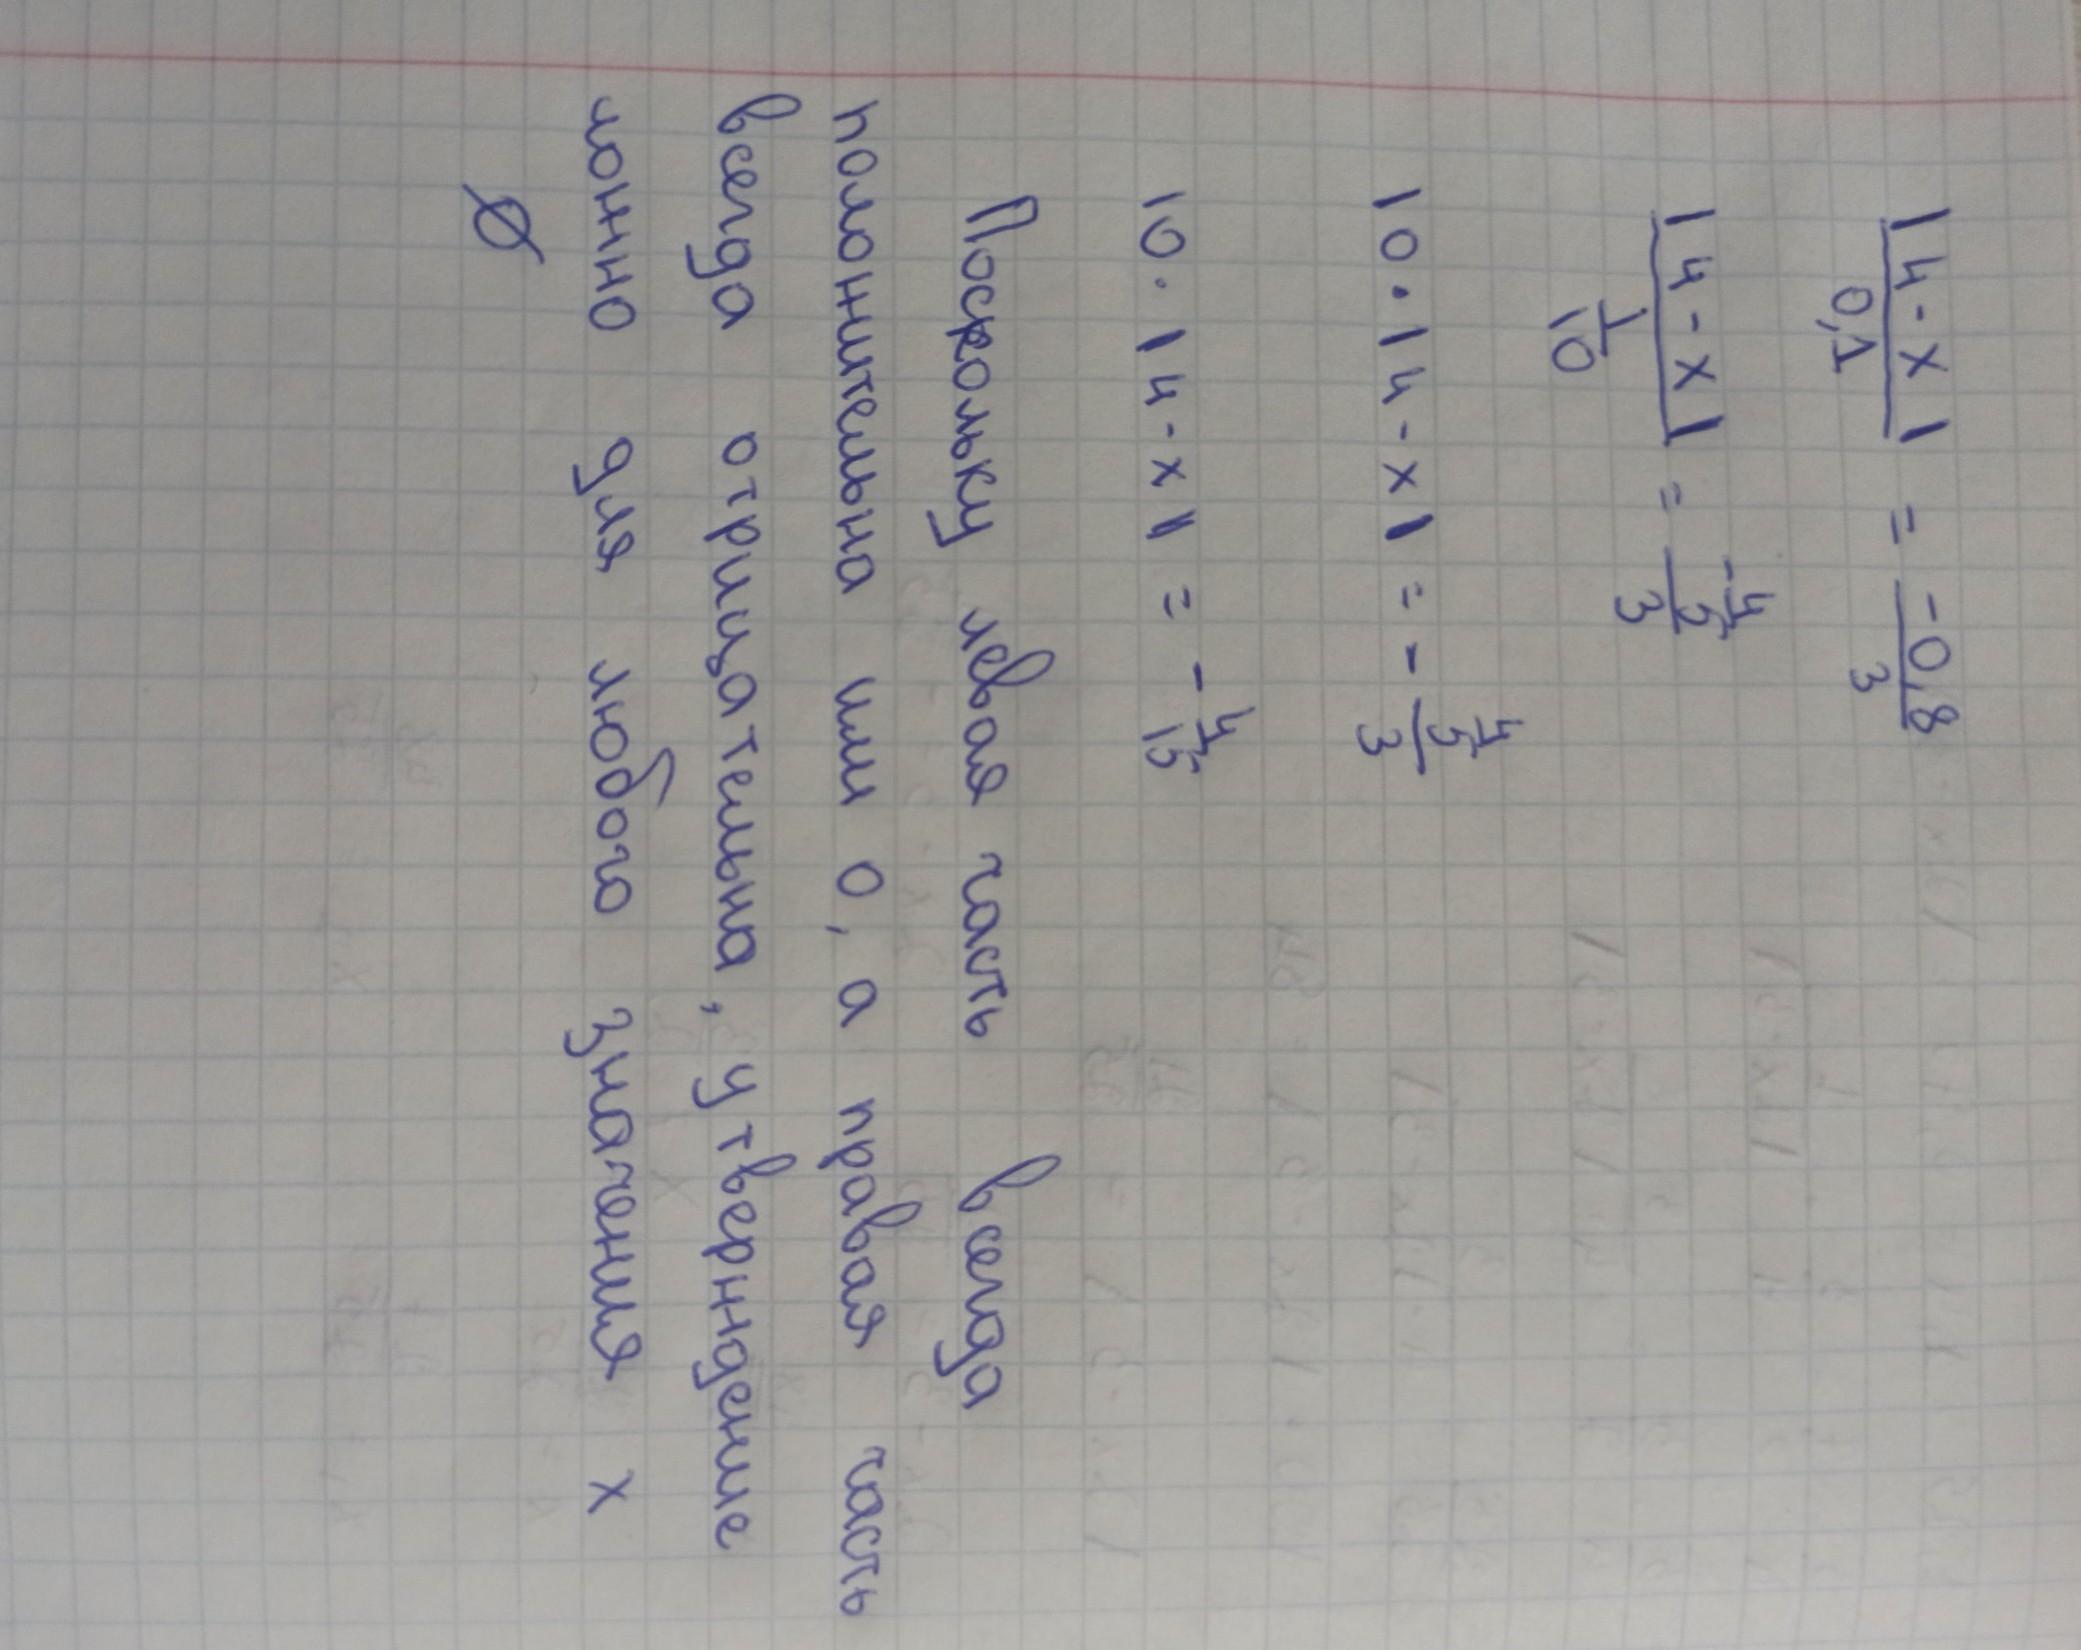 |4-x| / 0,1 = -0,8 / 3
|4-x| / (1/10) = -4/5 / 3
10·|4-x| = - 4/5 / 3
10·|4-x| = - 4/15
Поскольку левая часть всегда
положительна или 0, а правая часть
всегда отрицательна, утверждение
ложно для любого значения x
∅